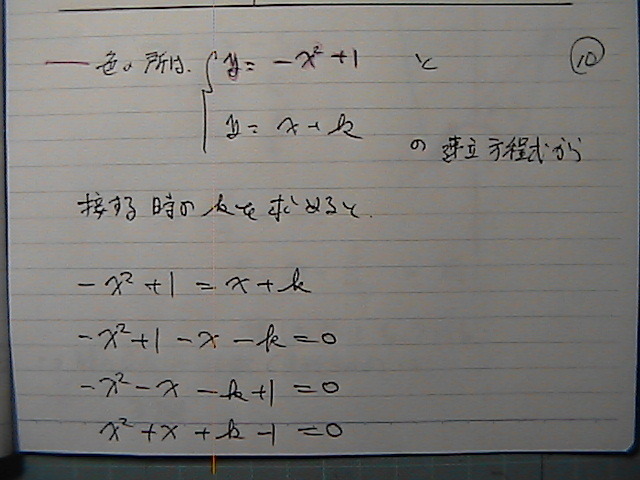 ── 色の所は、 y = -x²+1 と ⑩
y = x+k の連立方程式から
接する時のkを求めると、
-x²+1 = x+k
-x²+1-x-k=0
-x²-x-k+1=0
x²+x+k-1=0